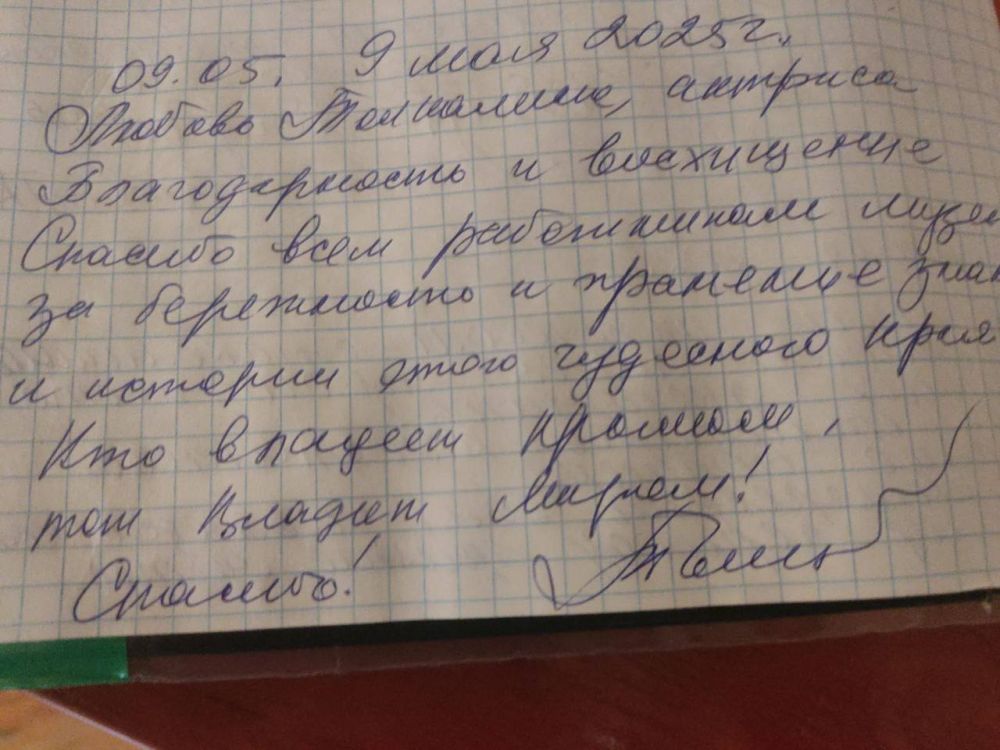 09.05. 9 мая 2025г.
Любовь Толкалина, актриса
Благодарность и восхищение
Спасибо всем работникам музея
за бережность и хранение
и истории этого чудесного края
Кто владеет прошлым,
тот владеет Миром!
Спасибо!